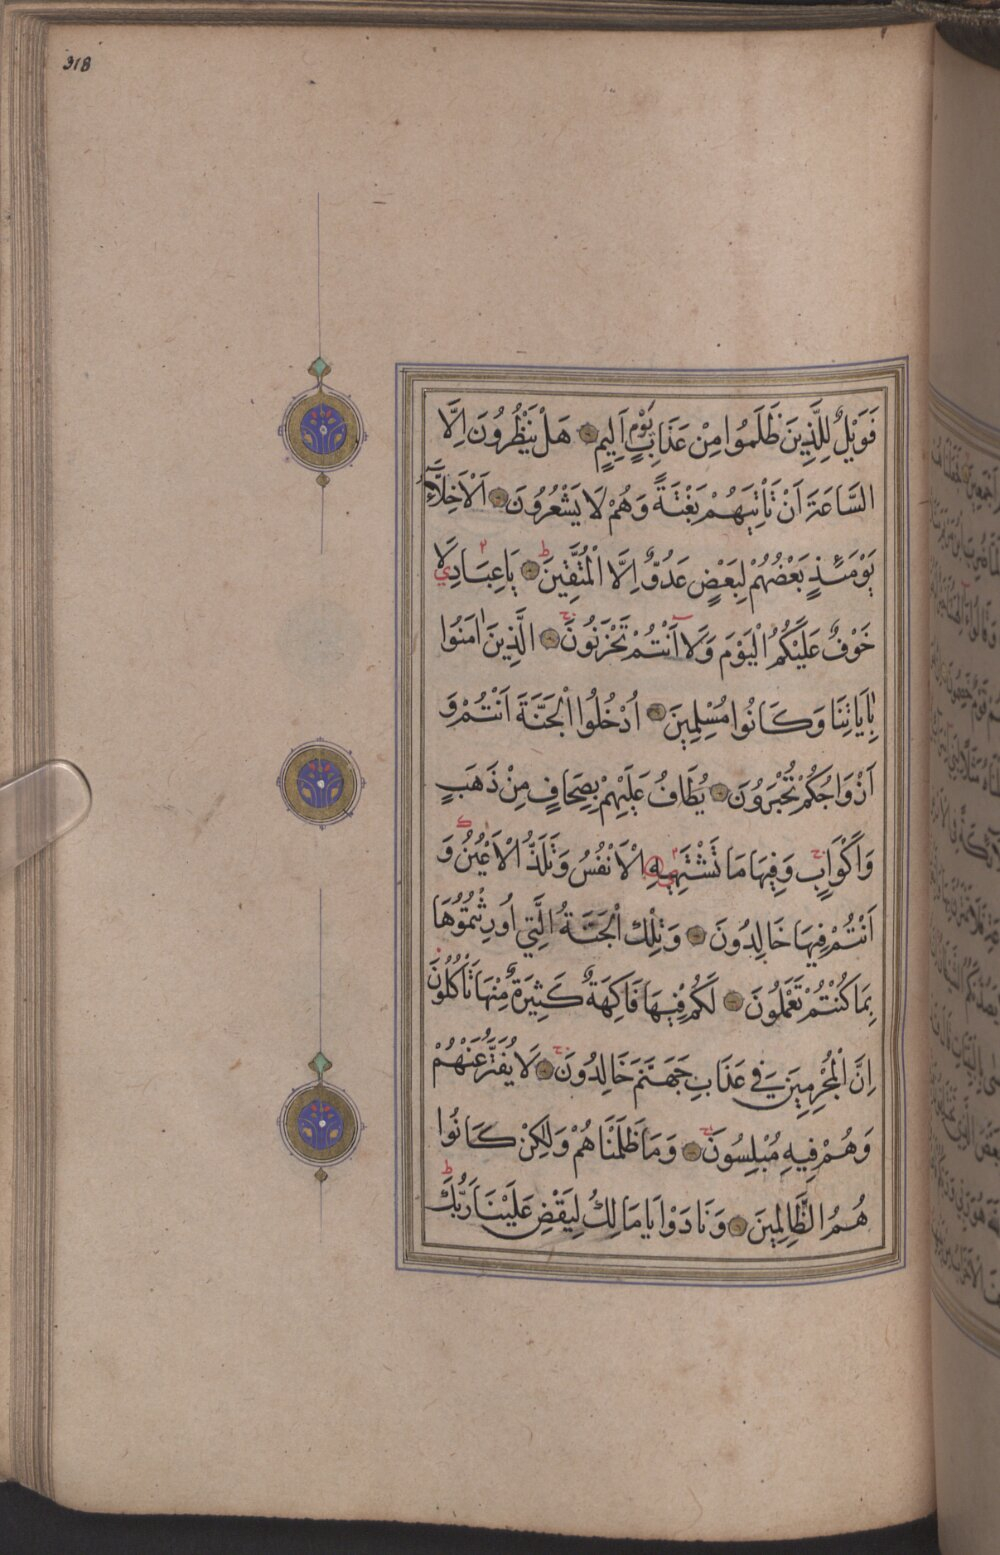 318
فَوَيْلٌ لِلَّذِينَ ظَلَمُوا مِنْ عَذَابِ يَوْمٍ اَلِيمٍ هَلْ يَنْظُرُونَ اِلَّا
السَّاعَةَ اَنْ تَأْتِيَهُمْ بَغْتَةً وَهُمْ لَا يَشْعُرُونَ اَلْاَخِلَّاۤءُ
يَوْمَئِذٍ بَعْضُهُمْ لِبَعْضٍ عَدُوٌّ اِلَّا الْمُتَّقِينَ ط يَاعِبَادِي لَا
خَوْفٌ عَلَيْكُمُ الْيَوْمَ وَلَاۤ اَنْتُمْ تَحْزَنُونَ ج الَّذِينَ اٰمَنُوا
بِاٰيَاتِنَا وَكَانُوا مُسْلِمِينَ اُدْخُلُوا الْجَنَّةَ اَنْتُمْ وَ
اَزْوَاجُكُمْ تُحْبَرُونَ يُطَافُ عَلَيْهِمْ بِصِحَافٍ مِنْ ذَهَبٍ
وَاَكْوَابٍ ج وَفِيهَا مَا تَشْتَهِيهِ الْاَنْفُسُ وَتَلَذُّ الْاَعْيُنُ وَ
اَنْتُمْ فِيهَا خَالِدُونَ وَتِلْكَ الْجَنَّةُ الَّتِي اُورِثْتُمُوهَا
بِمَا كُنْتُمْ تَعْمَلُونَ لَكُمْ فِيهَا فَاكِهَةٌ كَثِيرَةٌ مِنْهَا تَأْكُلُونَ
اِنَّ الْمُجْرِمِينَ فِي عَذَابِ جَهَنَّمَ خَالِدُونَ ج لَا يُفَتَّرُ عَنْهُمْ
وَهُمْ فِيهِ مُبْلِسُونَ ج وَمَا ظَلَمْنَاهُمْ وَلٰكِنْ كَانُوا
هُمُ الظَّالِمِينَ وَنَادَوْا يَا مَالِكُ لِيَقْضِ عَلَيْنَا رَبُّكَ ط